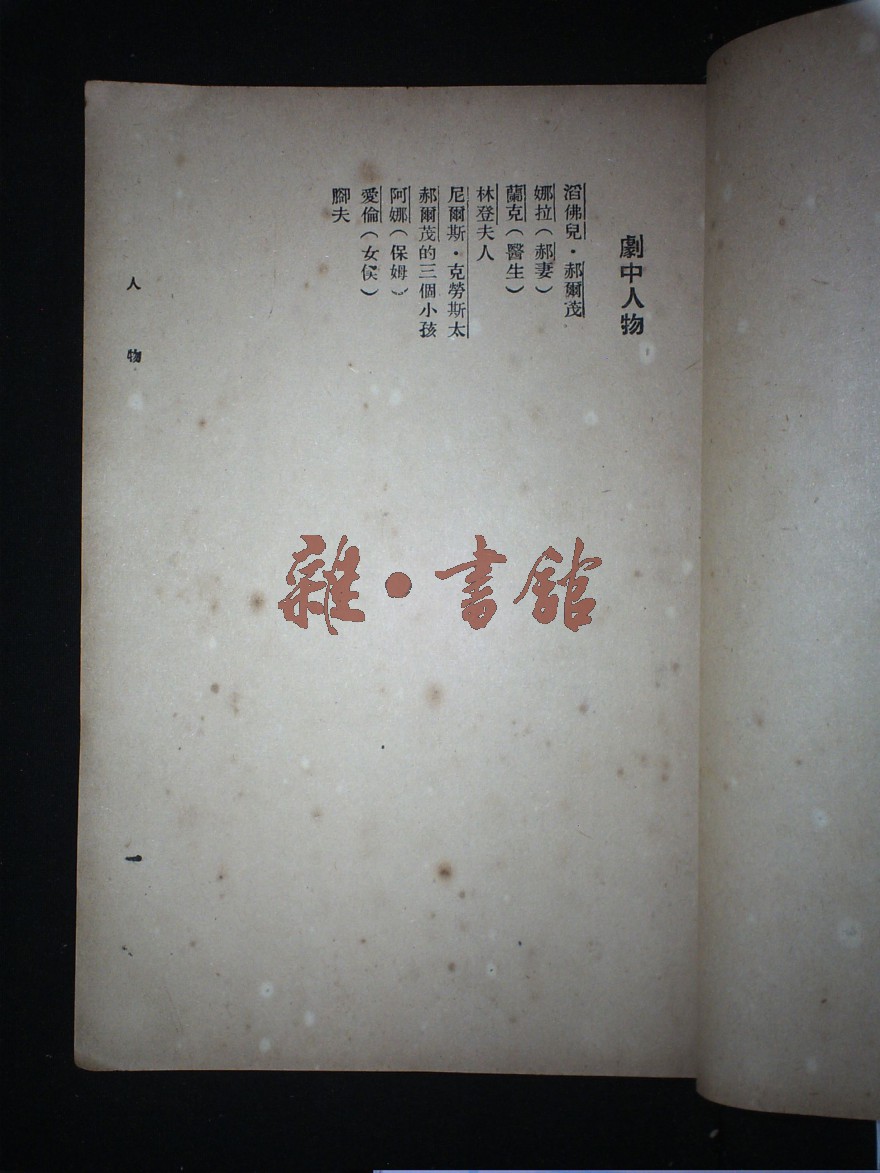 劇中人物
滔佛兒·郝爾茂
娜拉(郝妻)
蘭克(醫生)
林登夫人
尼爾斯·克勞斯太
郝爾茂的三個小孩
阿娜(保姆)
愛倫(女侯)
腳夫
人物
一
雜·書館